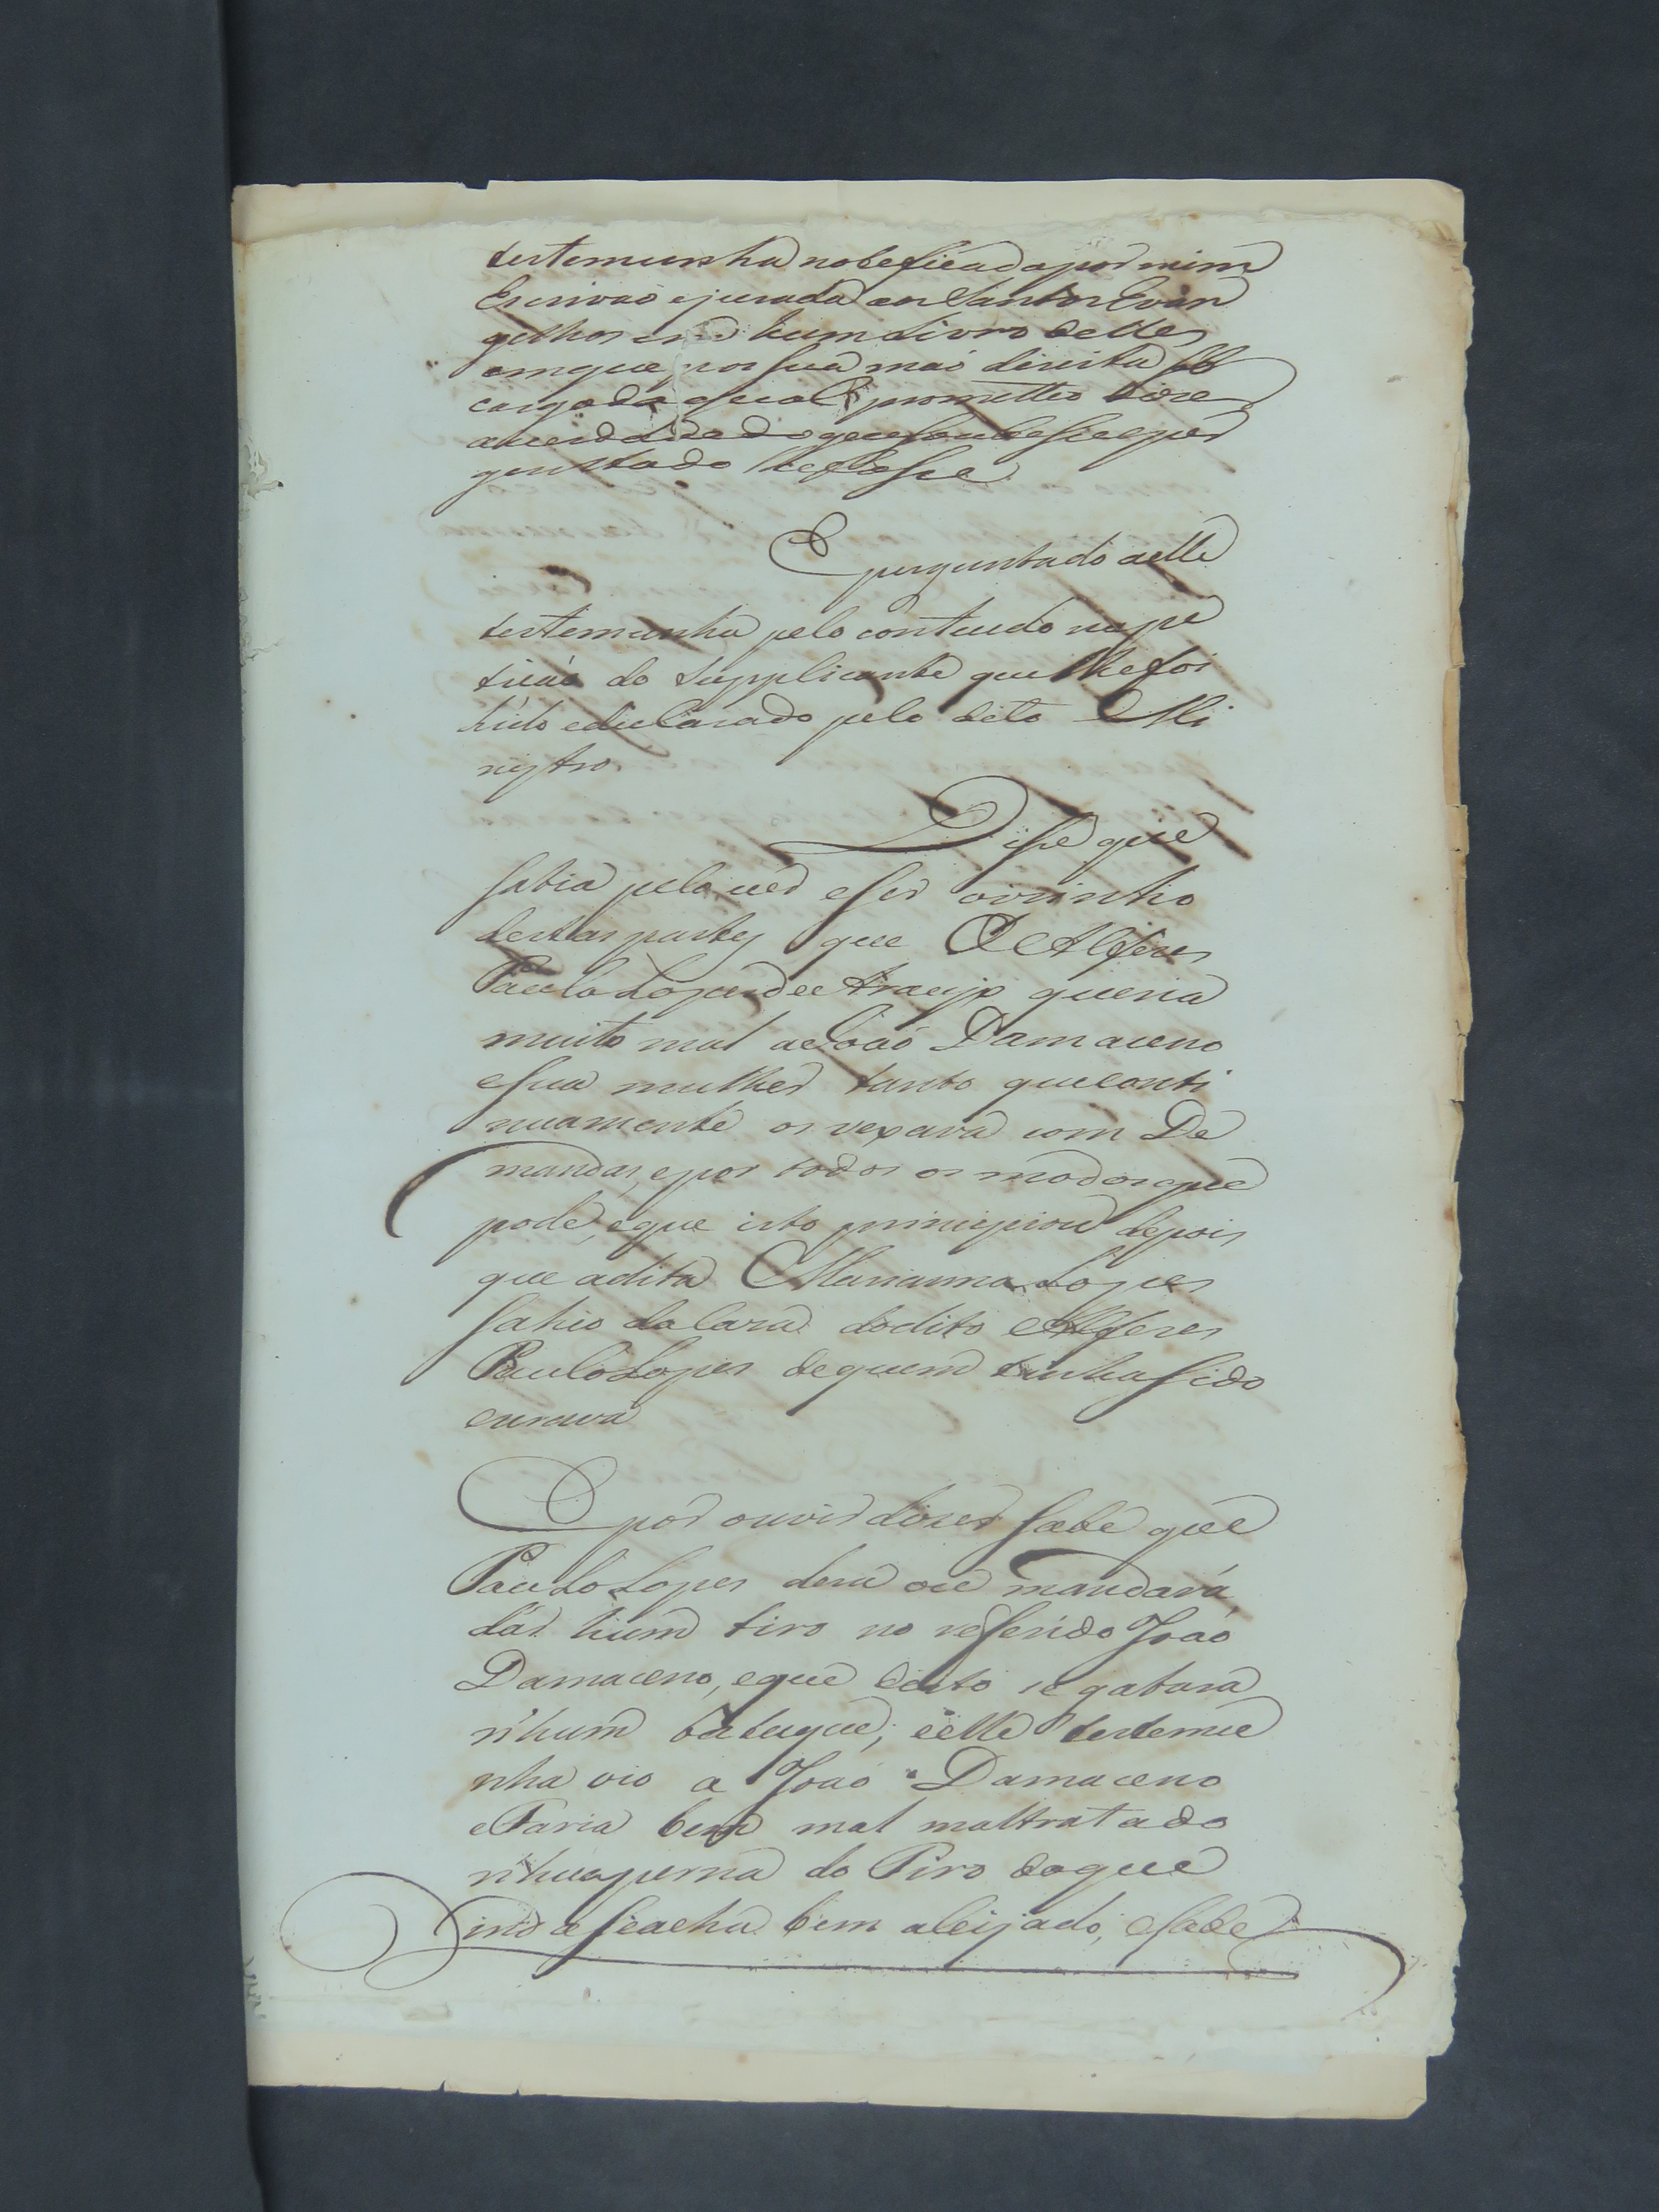 testemunha noteficada por mim
Escrivaõ ejurada aos Santos Evan
gelhos em hum Livro delles
emque pos sua maõ direita 
cargo da qual prometteo dizer
averdade do que soubesse eper
guntado lhefosse
E perguntado aelle
testemunha pelo contiudo nape
ticáo do Supplicante que lhefoi
lido edeclarado pelo dito Mi
nistro.
Disse que
Sabia pelo ver eser vizinho
destas partes que O Alferes
Paulo Lopes de Araujo queria
muito mal aJoaõ Damaceno
esua mulher tanto queconti
nuamente os vexava com De
mandas, epor todos os modos que
pode, eque isto principiou depois
que adita Marianna Lopes
Sahio daCaza dodito Alferes
Paulo Lopes dequem tinha sido
escrava
E por ouvir dizer sabe que
Paulo Lopes dera ou mandará
dár hum tiro no referido Joaõ
Damaceno, eque disto se gabara
n'hum batuque; eelle testemu
nha vio a Joaõ Damaceno
eFaria bem mal maltratado
n'huaperna do Tiro doque
inda seacha bem aleijado, esabe